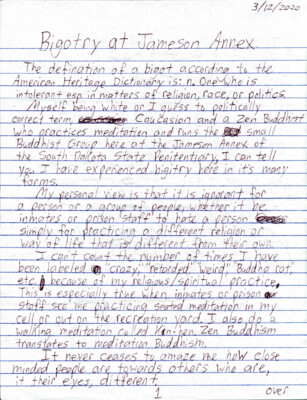 3/12/2020
Bigotry at Jameson Annex
The defination of a bigot according to the
American Heritage Dictionary is: n. One who is
intolerant esp. in matters of religion, race, or politics.
Myself being white or I guess to politically
correct term, Caucasion and a Zen Buddhist
who practices meditation and runs the small
Buddhist Group here at the Jameson Annex of
the South Dakota State Penitentiary, I can tell
you I have experienced bigitry here in its many
forms.
My personal view is that it is ignorant for
a person or a group of people, whether it be
inmates or prison staff to hate a person
simply for practicing a different religion or
way of life that is different from their own.
I can't count the number of times I have
been labeled "crazy," "retarded," "weird," Buddha rat,"
etc. because of my religious/spiritual practice,
This is especially true when inmates or prison
staff see me practicing seated meditation in my
cell or out on the recreation yard. I also do a
walking meditation called Kin-hen. Zen Buddhism
translates to meditation Buddhism.
It never ceases to amaze me how close
minded people are towards others who are,
it their eyes, different.
1
over